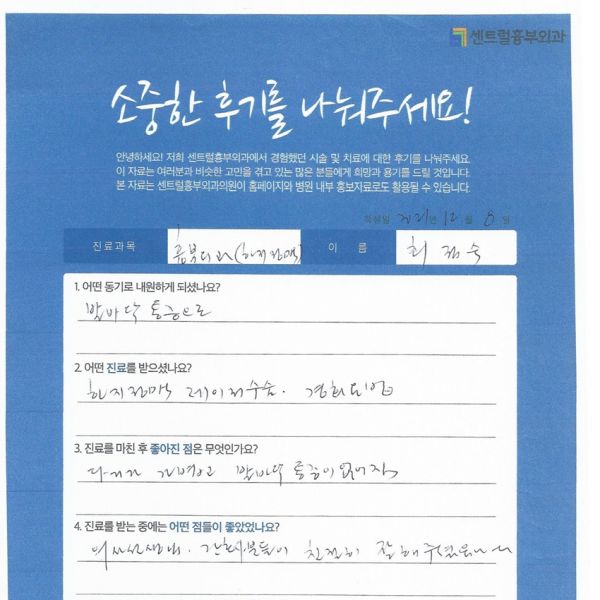 센트럴흉부외과
소중한 후기를 나눠주세요!
안녕하세요! 저희 센트럴흉부외과에서 경험했던 시술 및 치료에 대한 후기를 나눠주세요.
이 자료는 여러분과 비슷한 고민을 겪고 있는 많은 분들에게 희망과 용기를 드릴 것입니다.
본 자료는 센트럴흉부외과의원이 홈페이지와 병원 내부 홍보자료로도 활용될 수 있습니다.
작성일 2021년 12월 8일
진료과목 흉부외과(하지정맥) 이 름 최 정 숙
1. 어떤 동기로 내원하게 되셨나요?
발바닥 통증으로
2. 어떤 진료를 받으셨나요?
하지정맥 레이저수술.
3. 진료를 마친 후 좋아진 점은 무엇인가요?
다리가 가볍고 발바닥 통증이 없어짐
4. 진료를 받는 중에는 어떤 점들이 좋았었나요?
의사선생님, 간호사분들이 친절히 잘해주셨음